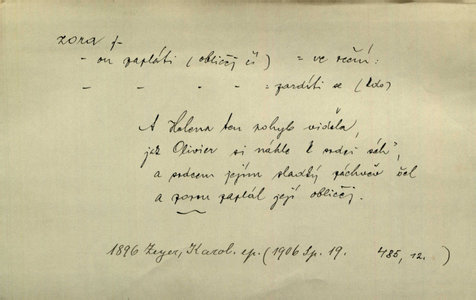 zora f.
- ou zapláti (obličej čí) = ve rčení:
- - - - = zardíti se (kdo)
A Helena ten pohyb viděla,
jež Olivier si náhle k srdci sáh",
a srdcem jejím sladký záchvěv šel
a zorou zaplál její obličej.
1896 Zeyer, Karol. ep. (1906 Sp. 19. 485, 12.)